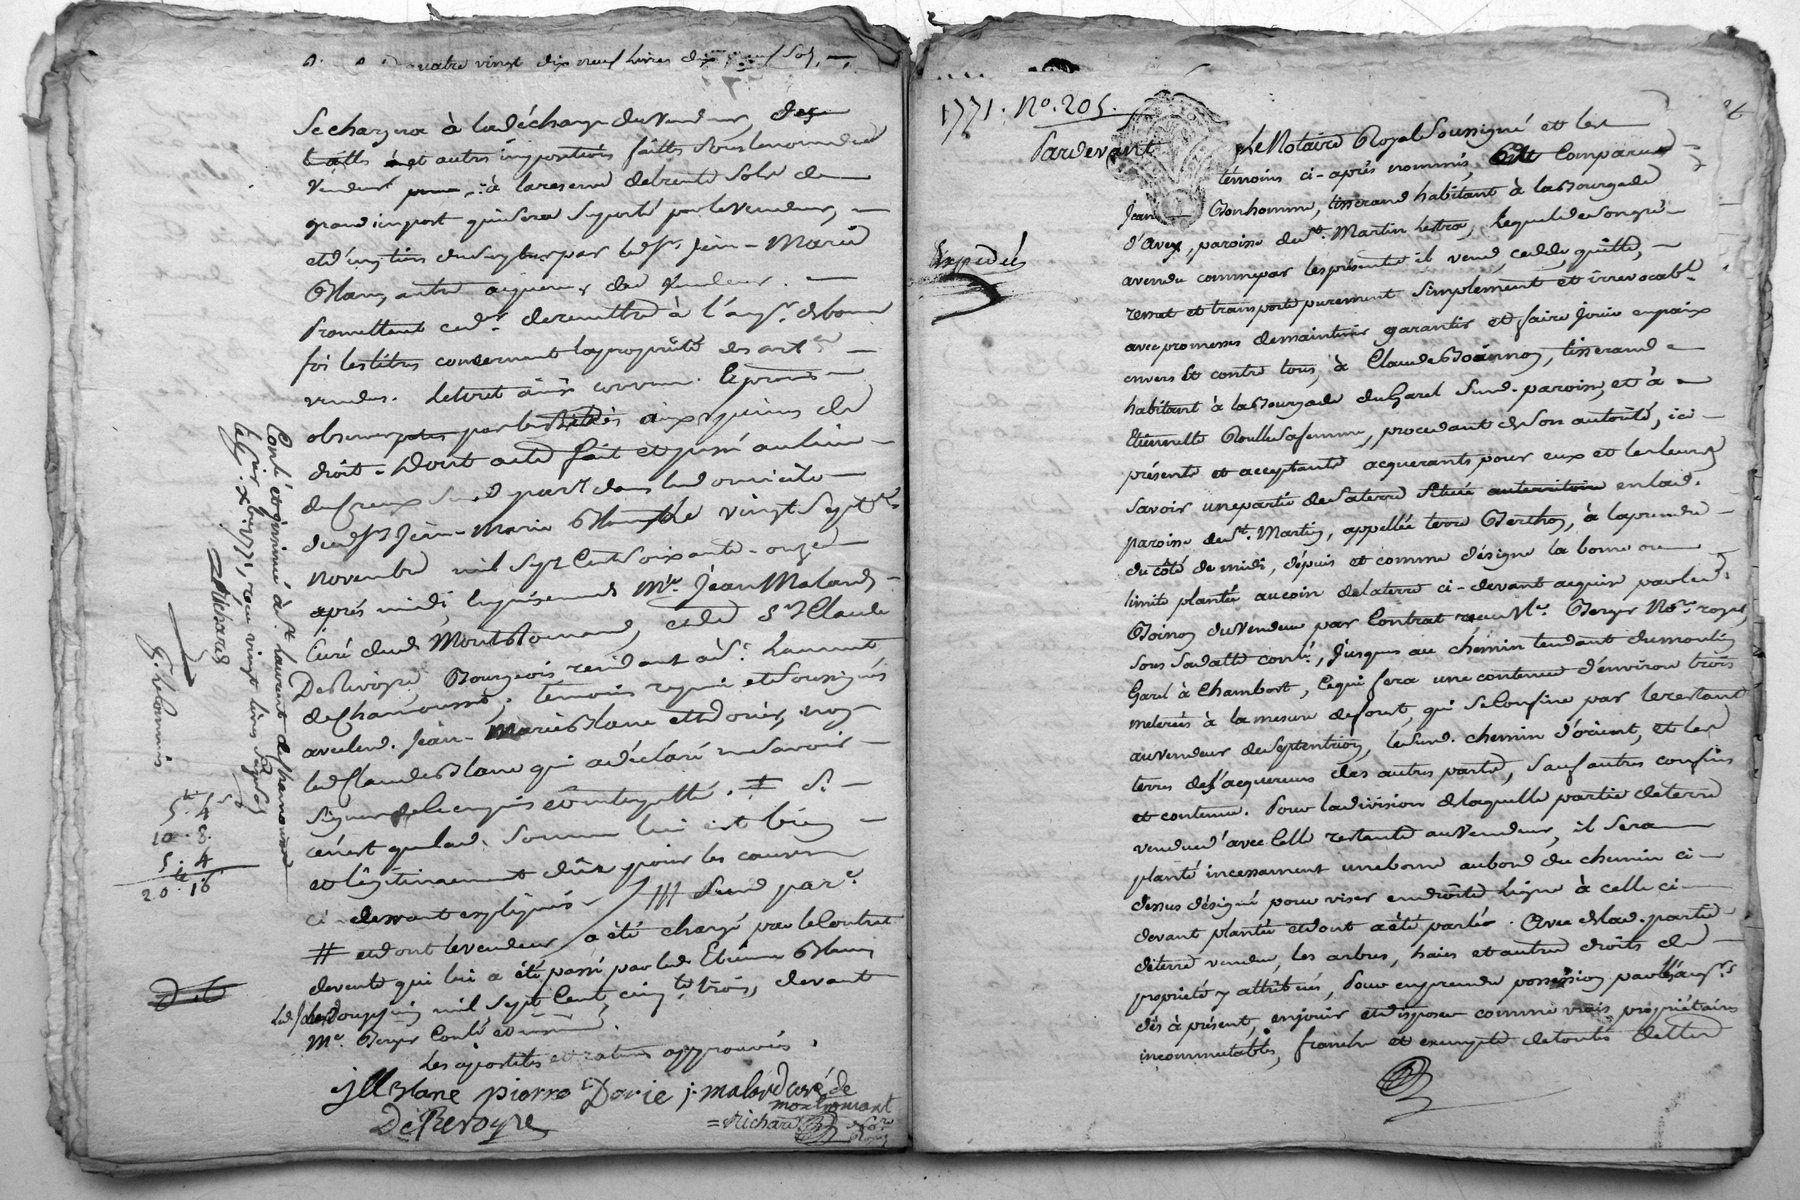 quatre vingt dix neuf livres dix neuf sols
Se chargera à la décharge du vendeur, des
et autres impositions faittes sous le nom du d.
vendeur à la reserve de trente sols de
grand import qui sera supporté par le vendeur,
par led. Sr. Jean-Marie
Blanc, autre acquereur dud. vendeur.
Promettant led. vr. de remettre à l'aqr. de bonne
foi les titres concernant la proprieté des art.
vendus. Le tout ainsi convenu. Et promis
observer par les parties aux peines de
droit. Dont acte fait et passé au lieu
du Creux Sus d. parse. dans le domicile
dud. Sr. Jean-Marie Blanc le vingt Sept
novembre mil Sept Cent Soixante-onze
après midi, En présence de Mre. Jean Malard
Curé dud. Montromand, et de Sr. Claude
DeRevoyre, Bourgeois residant à St. Laurent
de Chamousset, témoins requis et Soussignés
avec led. Jean-Marie Blanc et Dorier, non
led. Claude Blanc qui a déclaré ne Savoir
Signer de ce enquis et interpellé. # Si
ce n'est que lad. Somme lui est bien
et légitimement dûe pour les causes
ci-devant expliquées /// Susd. parse.
# et dont le vendeur a été chargé par le Contrat
de vente qui lui a été passé par led. Etienne Blanc
mil Sept Cent cinqte. trois, devant
Me. Berger Conlé. et insinué.
Les apostilles et ratures approuvées.
JM Blanc pierre Dorie j. malard curé de
montromant
DeRevoyre
Richard
Conlé. et insinué à St. Laurent de Chamousset
le Six Xbre. 1771, reçu vingt livres Seize Sols
Richard
5tt. 4s
10. 8.
5. 4
20tt. 16s
1771. No. 205.
26
Pardevant
Le Notaire Royal Soussigné et les
témoins ci-après nommés, Est Comparu
Jean Bonhomme, tisserand habitant à la Bourgade
d'Aveyz, paroisse de St. Martin Lestra, Lequel de Son gré
a vendu comme par les présentes il vend, cedde, quitte,
remet et transporte purement Simplement et irrevocablt.
avec promesses de maintenir garantir et faire Jouir en paix
envers Et contre tous, à Claude Boinnon, tisserand
habitant à la Bourgade du Garel Susd. paroisse, et à
Etiennette Roulle Sa femme, procedant de Son autorité, ici
présents et acceptants acquerants pour eux et les leurs
Savoir une partie de Sa terre Située au territoire en lad.
paroisse de St. Martin, appellée terre Berthon, à la prendre
du côté de midi, dépuis et comme désigne la borne ou
limite plantée au coin de la terre ci-devant acquise par led.
Boinon du Vendeur par Contrat reçu Me. Berger Nore. royal,
Sous Sa datte conlé., Jusques au chemin tendant du moulin
Garel à Chambost, Ce qui fera une contenue d'environ trois
meterées à la mesure de forest, qui Se Confine par le restant
au vendeur de Septentrion, le Susd. chemin d'orient, et les
terres des acquereurs des autres parts, Sauf autres confins
et contenue. Pour la division de laquelle partie de terre
vendue d'avec Celle restante au Vendeur, il Sera
planté incessament une borne au bord du chemin ci
dessus désigné pour viser en droite Ligne à celle ci
devant plantée et dont a été parlé. Avec de lad. partie
de terre vendue, les arbres, haies et autres droits de
propriété y attribués, Pour en prendre possession par les aqrs.
dès à présent, en jouir et disposer comme vrais propriétaires
incommutables, franche et exempte de toutes dettes
Expédiée